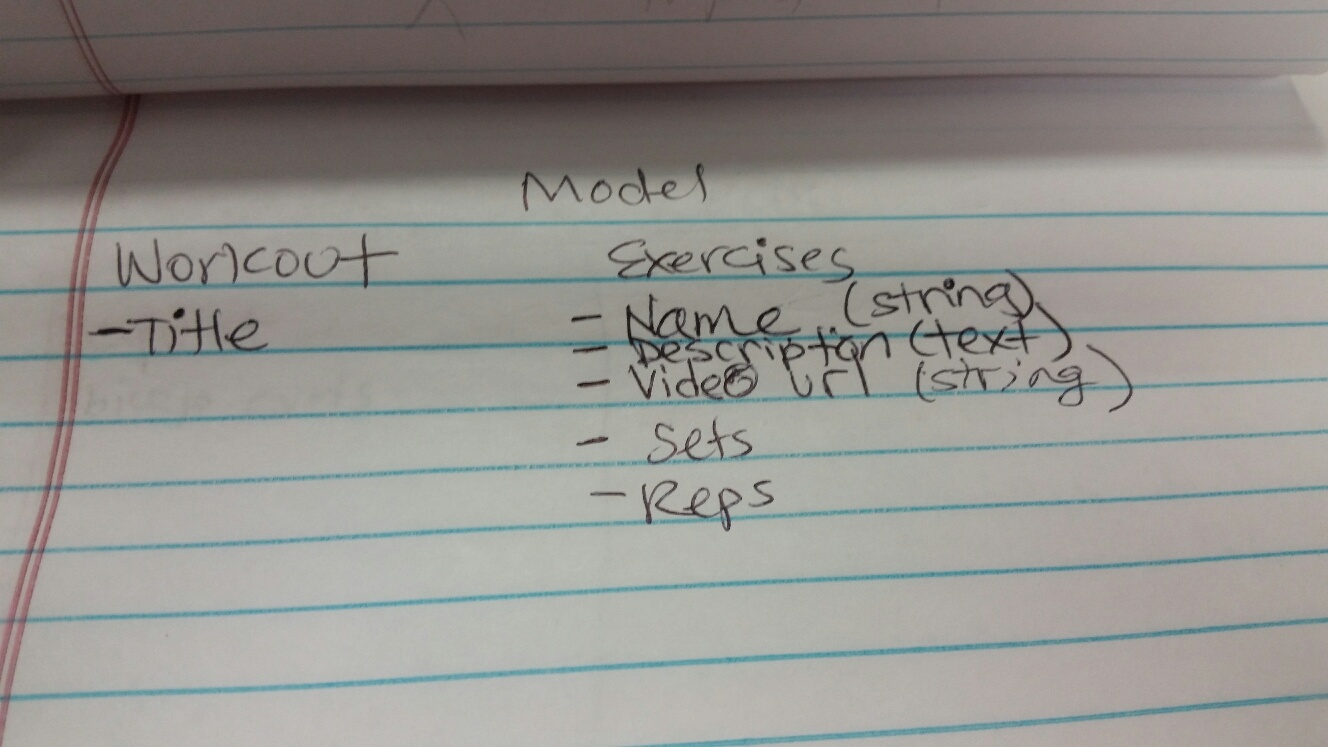 Model
Workout
- Title
Exercises
- Name (string)
- Description (text)
- Video url (string)
- Sets
- Reps